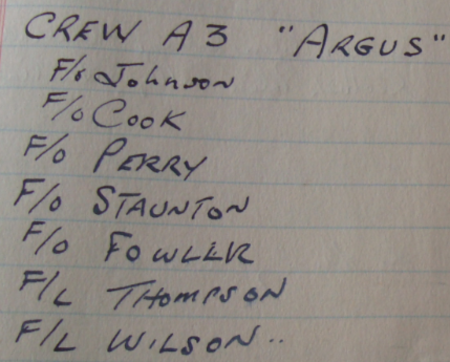 CREW A3 "ARGUS"
F/O Johnson
F/O COOK
F/O PERRY
F/O STAUNTON
F/O FOWLER
F/L THOMPSON
F/L WILSON..